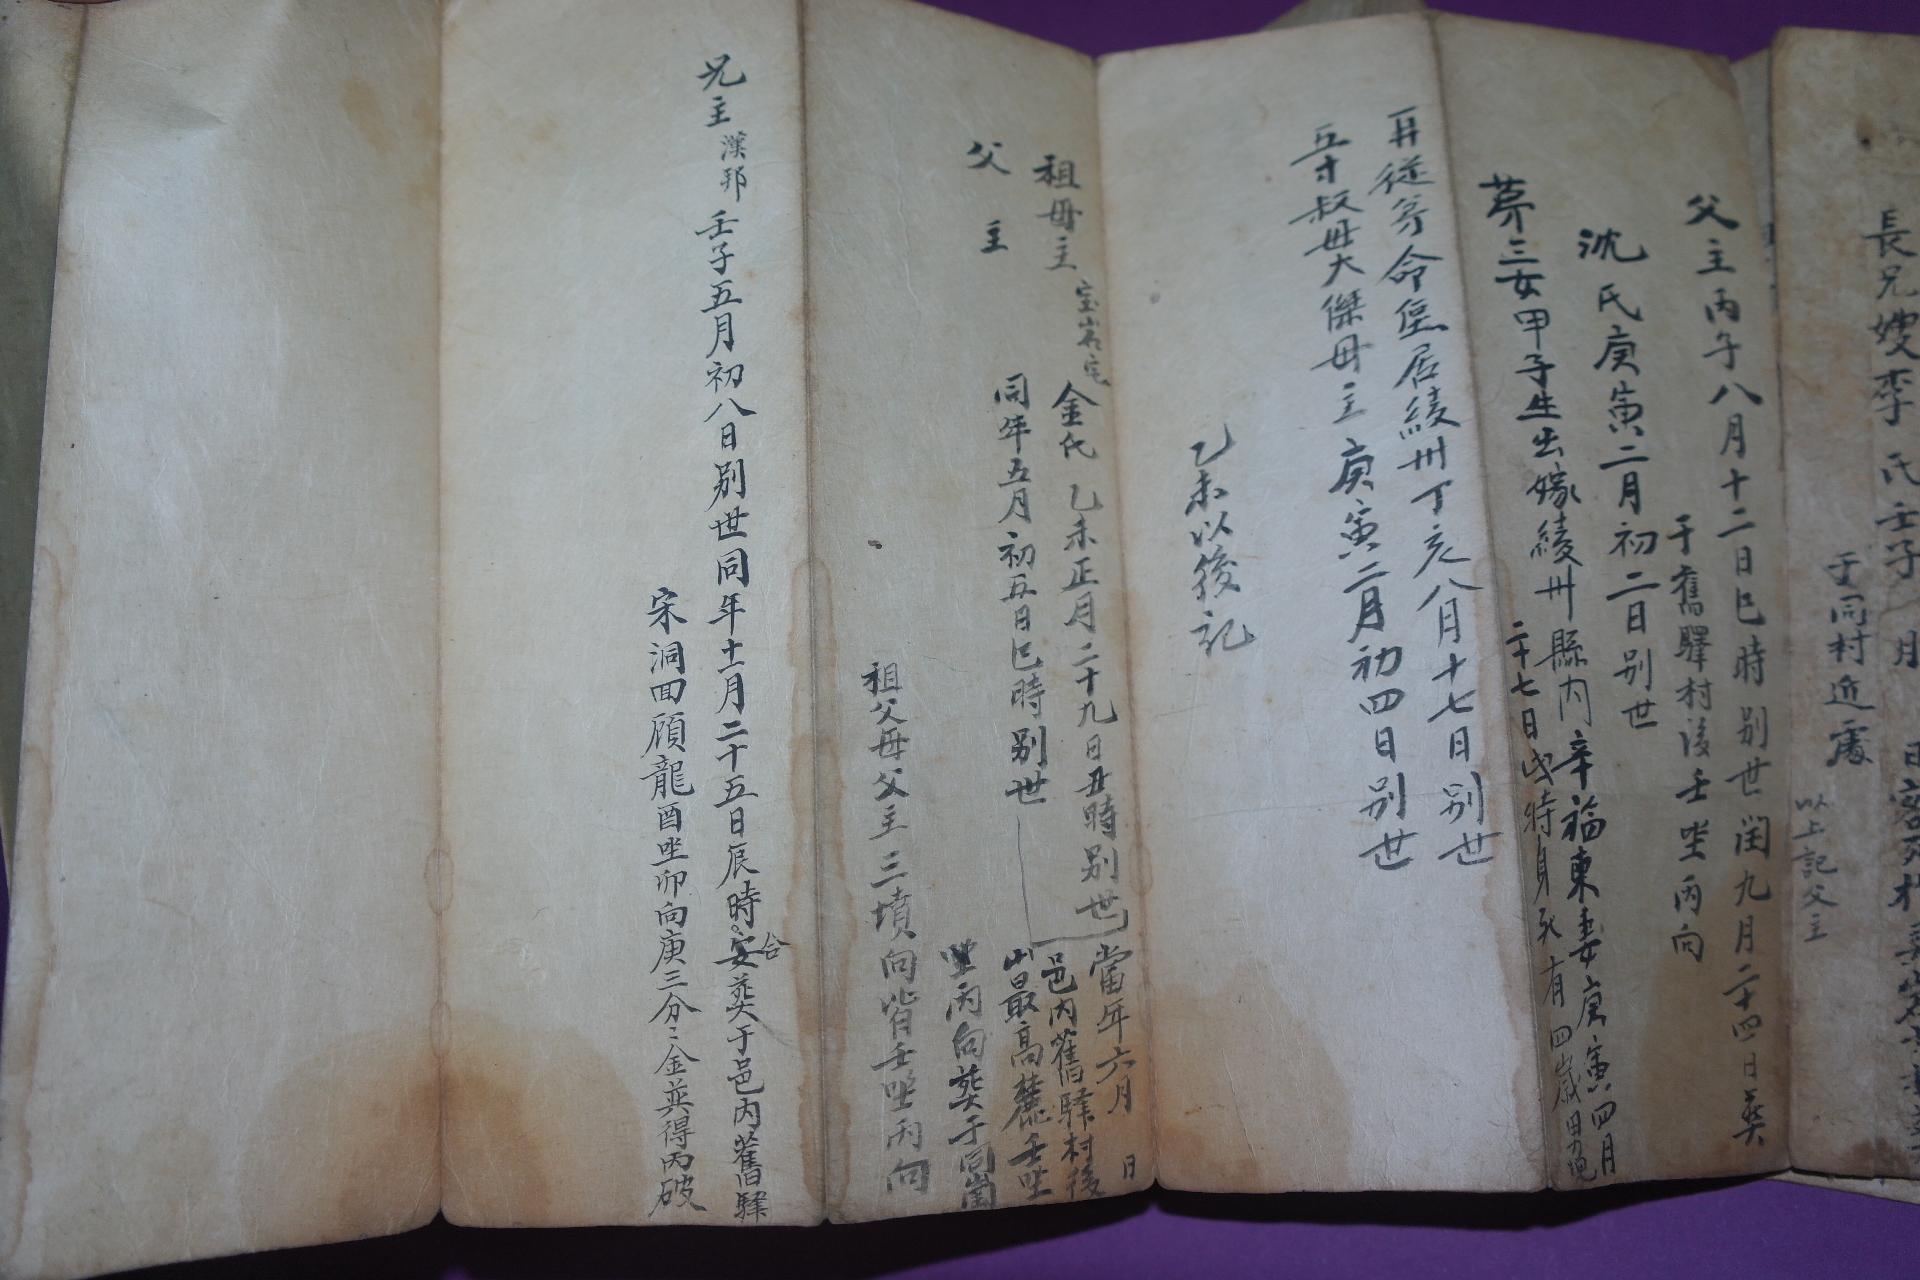 長兄嫂李氏壬子 月 日
壬同村近處
以上記父主
父主丙午八月十二日巳時別世閏九月二十四日葬
于舊驛村後壬坐丙向
沈氏庚寅二月初二日別世
第三女甲子生出嫁綾州縣內辛福東妻庚寅四月
二十七日戌時身死有四歲男児
再從弟命 居綾州丁亥八月十七日別世
五寸叔母大傑母主庚寅二月初四日別世
乙未以後記
祖母主宝岩宅金氏乙未正月二十九日丑時別世
父主 同年五月初五日巳時別世
當年六月 日
邑內舊驛村後
山最高麓壬坐
坐丙向葬于同崗
祖父母父主三墳向皆壬坐丙向
兄主漢邦壬子五月初八日別世同年十一月二十五日辰時合安葬于邑內舊驛
宋洞回顧龍酉坐卯向庚三分〻金葬得丙破